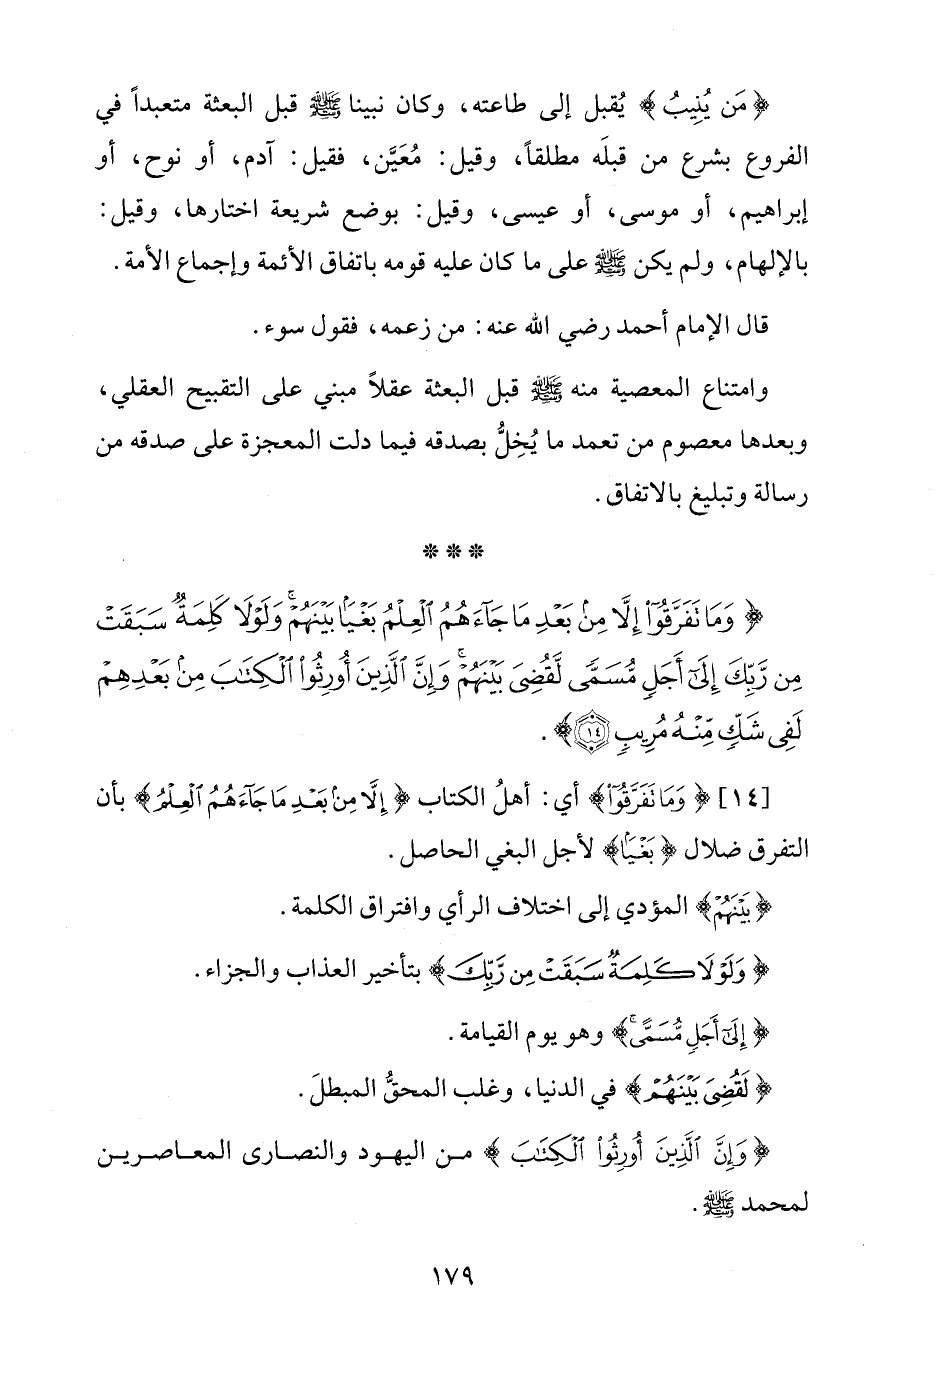 ﴿مَن يُنِيبُ﴾ يُقبل إلى طاعته، وكان نبينا ﷺ قبل البعثة متعبداً في
الفروع بشرع من قبلَه مطلقاً، وقيل: مُعَيَّن، فقيل: آدم، أو نوح، أو
إبراهيم، أو موسى، أو عيسى، وقيل: بوضع شريعة اختارها، وقيل:
بالإلهام، ولم يكن ﷺ على ما كان عليه قومه باتفاق الأئمة وإجماع الأمة.
قال الإمام أحمد رضي الله عنه: من زعمه، فقول سوء.
وامتناع المعصية منه ﷺ قبل البعثة عقلاً مبني على التقبيح العقلي،
وبعدها معصوم من تعمد ما يُخِلُّ بصدقه فيما دلت المعجزة على صدقه من
رسالة وتبليغ بالاتفاق.
* * *
﴿وَمَا تَفَرَّقُوٓا۟ إِلَّا مِنۢ بَعْدِ مَا جَآءَهُمُ ٱلْعِلْمُ بَغْيًۢا بَيْنَهُمْ ۚ وَلَوْلَا كَلِمَةٌ سَبَقَتْ
مِن رَّبِّكَ إِلَىٰٓ أَجَلٍ مُّسَمًّى لَّقُضِىَ بَيْنَهُمْ ۚ وَإِنَّ ٱلَّذِينَ أُورِثُوا۟ ٱلْكِتَٰبَ مِنۢ بَعْدِهِمْ
لَفِى شَكٍّ مِّنْهُ مُرِيبٍ ١٤﴾.
[١٤] ﴿وَمَا تَفَرَّقُوٓا۟﴾ أي: أهلُ الكتاب ﴿إِلَّا مِنۢ بَعْدِ مَا جَآءَهُمُ ٱلْعِلْمُ﴾ بأن
التفرق ضلال ﴿بَغْيًۢا﴾ لأجل البغي الحاصل.
﴿بَيْنَهُمْ﴾ المؤدي إلى اختلاف الرأي وافتراق الكلمة.
﴿وَلَوْلَا كَلِمَةٌ سَبَقَتْ مِن رَّبِّكَ﴾ بتأخير العذاب والجزاء.
﴿إِلَىٰٓ أَجَلٍ مُّسَمًّى ۚ﴾ وهو يوم القيامة.
﴿لَّقُضِىَ بَيْنَهُمْ﴾ في الدنيا، وغلب المحقُّ المبطلَ.
﴿وَإِنَّ ٱلَّذِينَ أُورِثُوا۟ ٱلْكِتَٰبَ﴾ مـن اليهود والنصارى المعاصرين
لمحمد ﷺ.
١٧٩